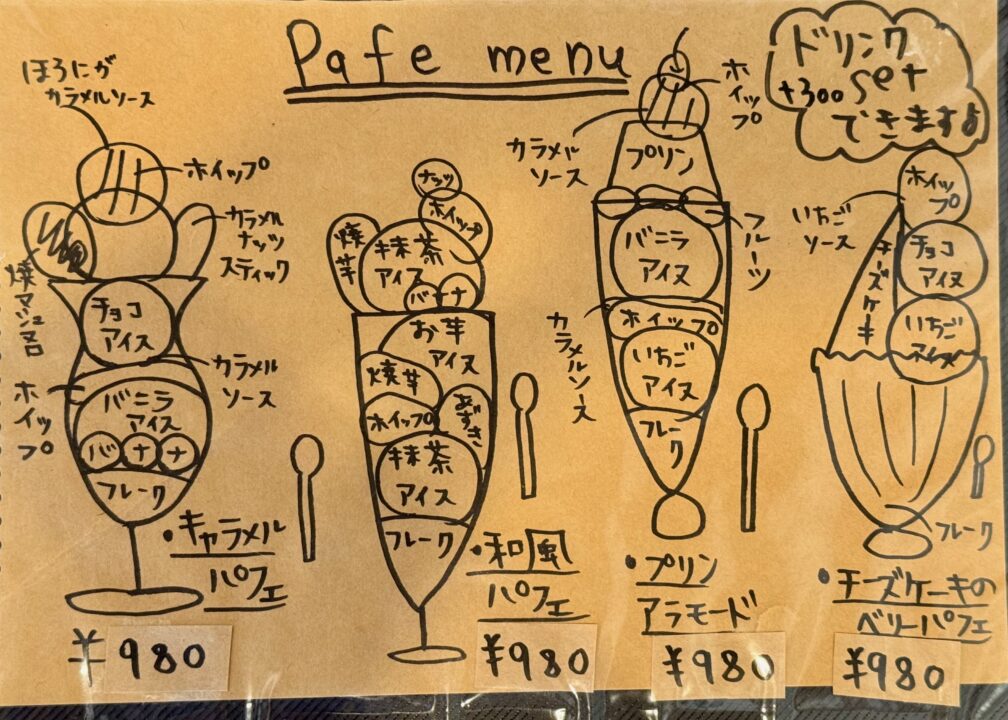 Pafe menu
ドリンク
+300 set
できますよ
ほろにが
カラメルソース
ホイップ
カラメル
ナッツ
スティック
焼マシュマロ
チョコ
アイス
カラメル
ソース
ホイップ
バニラ
アイス
バナナ
フレーク
・キャラメル
パフェ
¥980
ナッツ
ホイップ
焼芋
抹茶
アイス
バナナ
お芋
アイス
焼芋
ホイップ
あずき
抹茶
アイス
フレーク
・和風
パフェ
¥980
ホイップ
カラメル
ソース
プリン
フルーツ
バニラ
アイス
ホイップ
カラメルソース
いちご
アイス
フレーク
・プリン
アラモード
¥980
ホイップ
いちご
ソース
チーズケーキ
チョコ
アイス
いちご
アイス
フレーク
・チーズケーキの
ベリーパフェ
¥980